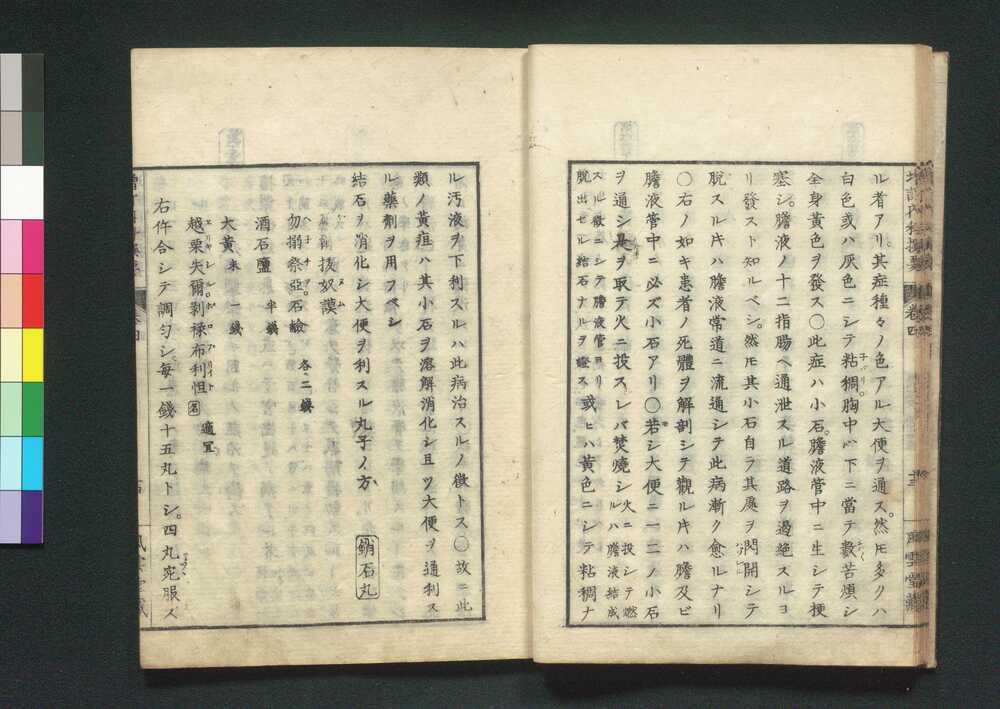 ル者アリ。其症種々ノ色アル大便ヲ通ス。然𪜈多クハ
白色或ハ灰色ニシテ粘稠。胸中心下ニ當テ數苦煩シ
全身黃色ヲ發ス〇此症ハ小石。膽液管中ニ生シテ梗
塞シ。膽液ノ十二指腸ヘ通泄スル道路ヲ遏絕スルヨ
リ發スト知ルベシ。然𪜈其小石自ラ其處ヲ閃開シテ
脫スル𪜈ハ膽液常道ニ流通シテ此病漸ク愈ルナリ
〇右ノ如キ患者ノ死體ヲ解剖シテ觀ル𪜈ハ膽及ビ
膽液管中ニ必ズ小石アリ〇若シ大便ニ一二ノ小石
ヲ通シ是ヲ取テ火ニ投スレバ焚燒シ 火ニ投シテ燃
ルハ膽液結成
スル故ニシテ膽液管ヨリ
脫出セル結石ナルヲ證ス 或ヒハ黃色ニシテ粘稠ナ
卷四
風雲堂藏
ル汚液ヲ下利スルハ此病治スルノ徵トス〇故ニ此
類ノ黃疸ハ其小石ヲ溶解消化シ且ツ大便ヲ通利ス
ル藥劑ヲ用フベシ
結石ヲ消化シ大便ヲ利スル丸子ノ方 銷石丸
拔奴謨
勿搦祭亞石鹼 各二錢
酒石鹽 半錢
大黃末 一錢
越栗失爾剝祿布利怛 適宜
右件合シテ調勻シ。每一錢十五丸トシ。四丸宛服ス